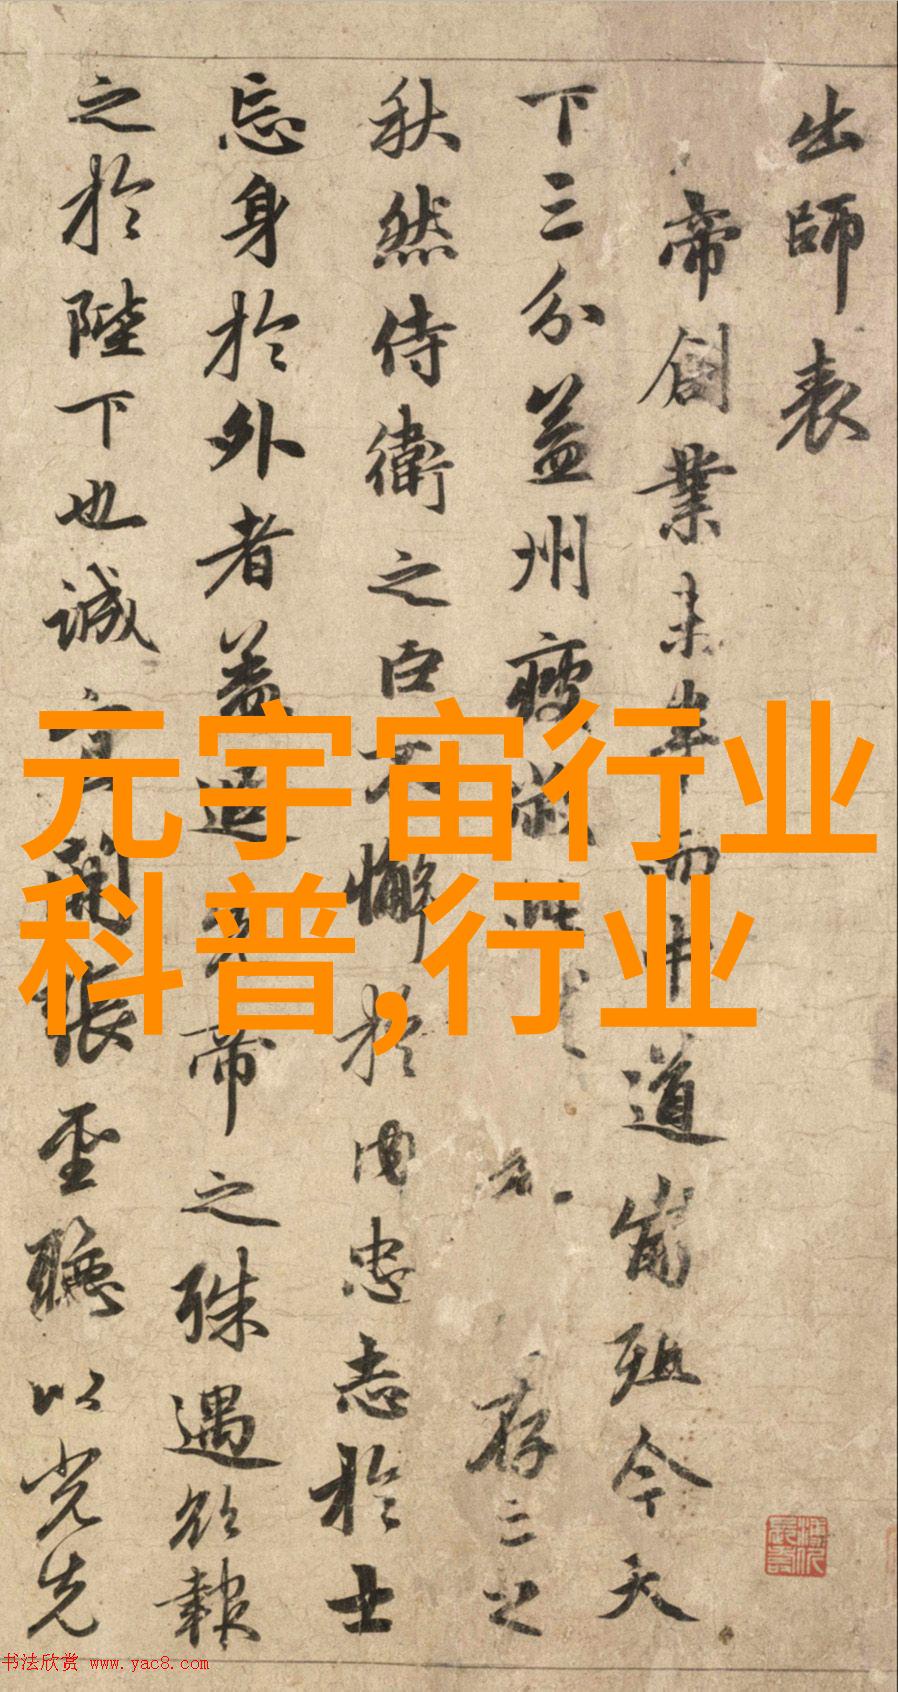 出師表
帝創業未半而中道崩殂今天
下三分益州疲敝此存亡之
秋然侍衛之臣不懈於内忠志於士
忘身於外者蓋追先帝之殊遇欲報
之於陛下也誠宜開張聖聽以光先
元宇宙行业
科普,行业
书法欣赏 www.yac8.com